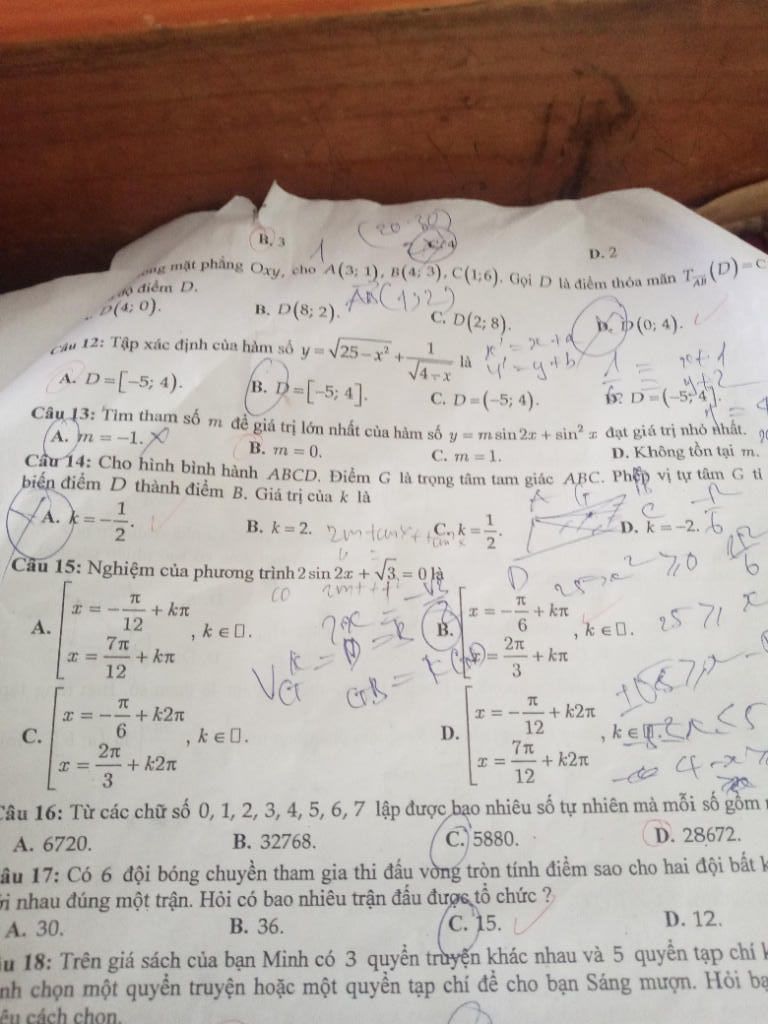 B. 3
D. 2
mặt phẳng Oxy, cho A(3; 1), B(4; 3), C(1;6). Gọi D là điểm thỏa mãn T_AB(D) = C
điểm D.
D(4; 0). B. D(8; 2). C. D(2; 8). D. D(0; 4).
AB(1;2)
Câu 12: Tập xác định của hàm số y = √(25 − x²) + 1/√(4 − x) là
x' = x + a
y' = y + b
A. D = [−5; 4). B. D = [−5; 4]. C. D = (−5; 4). D. D = (−5; 4].
Câu 13: Tìm tham số m để giá trị lớn nhất của hàm số y = m sin 2x + sin² x đạt giá trị nhỏ nhất.
A. m = −1. B. m = 0. C. m = 1. D. Không tồn tại m.
Câu 14: Cho hình bình hành ABCD. Điểm G là trọng tâm tam giác ABC. Phép vị tự tâm G tỉ
biến điểm D thành điểm B. Giá trị của k là
A. k = −1/2. B. k = 2. C. k = 1/2. D. k = −2.
Câu 15: Nghiệm của phương trình 2 sin 2x + √3 = 0 là
A. [x = −π/12 + kπ; x = 7π/12 + kπ, k ∈ □. B. [x = −π/6 + kπ; x = 2π/3 + kπ, k ∈ □.
C. [x = −π/6 + k2π; x = 2π/3 + k2π, k ∈ □. D. [x = −π/12 + k2π; x = 7π/12 + k2π, k ∈ □.
Câu 16: Từ các chữ số 0, 1, 2, 3, 4, 5, 6, 7 lập được bao nhiêu số tự nhiên mà mỗi số gồm
A. 6720. B. 32768. C. 5880. D. 28672.
âu 17: Có 6 đội bóng chuyền tham gia thi đấu vòng tròn tính điểm sao cho hai đội bất k
nhau đúng một trận. Hỏi có bao nhiêu trận đấu được tổ chức ?
A. 30. B. 36. C. 15. D. 12.
u 18: Trên giá sách của bạn Minh có 3 quyển truyện khác nhau và 5 quyển tạp chí k
nh chọn một quyển truyện hoặc một quyển tạp chí để cho bạn Sáng mượn. Hỏi bạ
êu cách chọn.